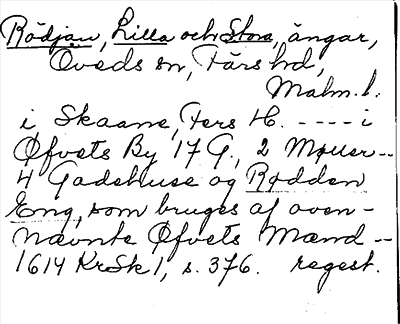 Rödjan, Lilla och Stora, ängar,
Öveds sn, Färs hd,
Malm. l.
i Skaane, Fers H. ---- i
Øfvets By 17 G., 2 Møller --
4 Gadehuse og Rødden
Eng, som bruges af oven-
nævnte Øfvets Mænd --
1614 KrSk 1, s. 376. regest.